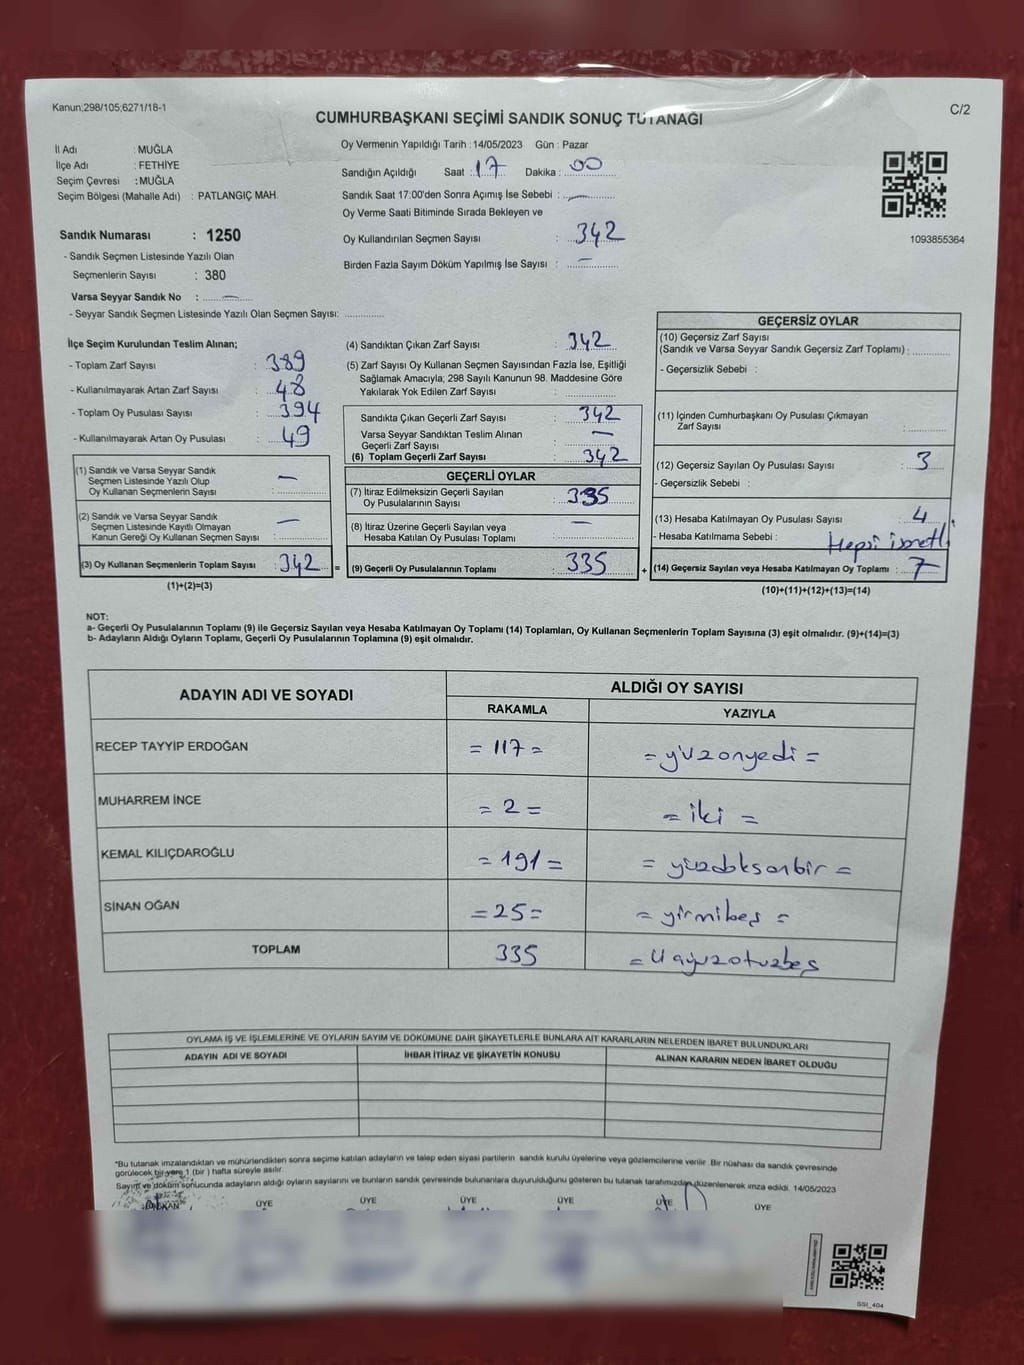 Kanun;298/105;6271/18-1
C/2
CUMHURBAŞKANI SEÇİMİ SANDIK SONUÇ TUTANAĞI
İl Adı : MUĞLA
İlçe Adı : FETHİYE
Seçim Çevresi : MUĞLA
Seçim Bölgesi (Mahalle Adı) : PATLANGIÇ MAH.
Sandık Numarası : 1250
- Sandık Seçmen Listesinde Yazılı Olan
Seçmenlerin Sayısı : 380
Varsa Seyyar Sandık No : —
- Seyyar Sandık Seçmen Listesinde Yazılı Olan Seçmen Sayısı: ............
Oy Vermenin Yapıldığı Tarih : 14/05/2023 Gün : Pazar
Sandığın Açıldığı Saat : 17 Dakika : 00
Sandık Saat 17:00'den Sonra Açımış İse Sebebi : —
Oy Verme Saati Bitiminde Sırada Bekleyen ve
Oy Kullandırılan Seçmen Sayısı : 342
Birden Fazla Sayım Döküm Yapılmış İse Sayısı : —
1093855364
İlçe Seçim Kurulundan Teslim Alınan;
- Toplam Zarf Sayısı : 389
- Kullanılmayarak Artan Zarf Sayısı : 48
- Toplam Oy Pusulası Sayısı : 394
- Kullanılmayarak Artan Oy Pusulası : 49
(1) Sandık ve Varsa Seyyar Sandık
Seçmen Listesinde Yazılı Olup
Oy Kullanan Seçmenlerin Sayısı : —
(2) Sandık ve Varsa Seyyar Sandık
Seçmen Listesinde Kayıtlı Olmayan
Kanun Gereği Oy Kullanan Seçmen Sayısı : —
(3) Oy Kullanan Seçmenlerin Toplam Sayısı : 342 =
(1)+(2)=(3)
(4) Sandıktan Çıkan Zarf Sayısı : 342
(5) Zarf Sayısı Oy Kullanan Seçmen Sayısından Fazla İse, Eşitliği
Sağlamak Amacıyla; 298 Sayılı Kanunun 98. Maddesine Göre
Yakılarak Yok Edilen Zarf Sayısı : ............
Sandıkta Çıkan Geçerli Zarf Sayısı : 342
Varsa Seyyar Sandıktan Teslim Alınan
Geçerli Zarf Sayısı : —
(6) Toplam Geçerli Zarf Sayısı : 342
GEÇERLİ OYLAR
(7) İtiraz Edilmeksizin Geçerli Sayılan
Oy Pusulalarının Sayısı : 335
(8) İtiraz Üzerine Geçerli Sayılan veya
Hesaba Katılan Oy Pusulaları Toplamı : —
(9) Geçerli Oy Pusulalarının Toplamı : 335 +
GEÇERSİZ OYLAR
(10) Geçersiz Zarf Sayısı
(Sandık ve Varsa Seyyar Sandık Geçersiz Zarf Toplamı) : ............
- Geçersizlik Sebebi :
(11) İçinden Cumhurbaşkanı Oy Pusulası Çıkmayan
Zarf Sayısı : ............
(12) Geçersiz Sayılan Oy Pusulası Sayısı : 3
- Geçersizlik Sebebi :
(13) Hesaba Katılmayan Oy Pusulası Sayısı : 4
- Hesaba Katılmama Sebebi : Hepsi isretli
(14) Geçersiz Sayılan veya Hesaba Katılmayan Oy Toplamı : 7
(10)+(11)+(12)+(13)=(14)
NOT:
a- Geçerli Oy Pusulalarının Toplamı (9) ile Geçersiz Sayılan veya Hesaba Katılmayan Oy Toplamı (14) Toplamları, Oy Kullanan Seçmenlerin Toplam Sayısına (3) eşit olmalıdır. (9)+(14)=(3)
b- Adayların Aldığı Oyların Toplamı, Geçerli Oy Pusulalarının Toplamına (9) eşit olmalıdır.
ADAYIN ADI VE SOYADI ALDIĞI OY SAYISI
RAKAMLA YAZIYLA
RECEP TAYYİP ERDOĞAN = 117 = = yüzonyedi =
MUHARREM İNCE = 2 = = iki =
KEMAL KILIÇDAROĞLU = 191 = = yüzdoksanbir =
SİNAN OĞAN = 25 = = yirmibeş =
TOPLAM 335 = üçyüzotuzbeş
OYLAMA İŞ VE İŞLEMLERİNE VE OYLARIN SAYIM VE DÖKÜMÜNE DAİR ŞİKAYETLERLE BUNLARA AİT KARARLARIN NELERDEN İBARET BULUNDUKLARI
ADAYIN ADI VE SOYADI İHBAR İTİRAZ VE ŞİKAYETİN KONUSU ALINAN KARARIN NEDEN İBARET OLDUĞU
*Bu tutanak imzalandıktan ve mühürlendikten sonra seçime katılan adayların ve talep eden siyasi partilerin sandık kurulu üyelerine veya gözlemcilerine verilir. Bir nüshası da sandık çevresinde
görülecek bir yere 1 (bir) hafta süreyle asılır.
Sayım ve döküm sonucunda adayların aldığı oyların sayılarını ve bunların sandık çevresinde bulunanlara duyurulduğunu gösteren bu tutanak tarafımızdan düzenlenerek imza edildi. 14/05/2023
BAŞKAN ÜYE ÜYE ÜYE ÜYE ÜYE ÜYE
SSI_404